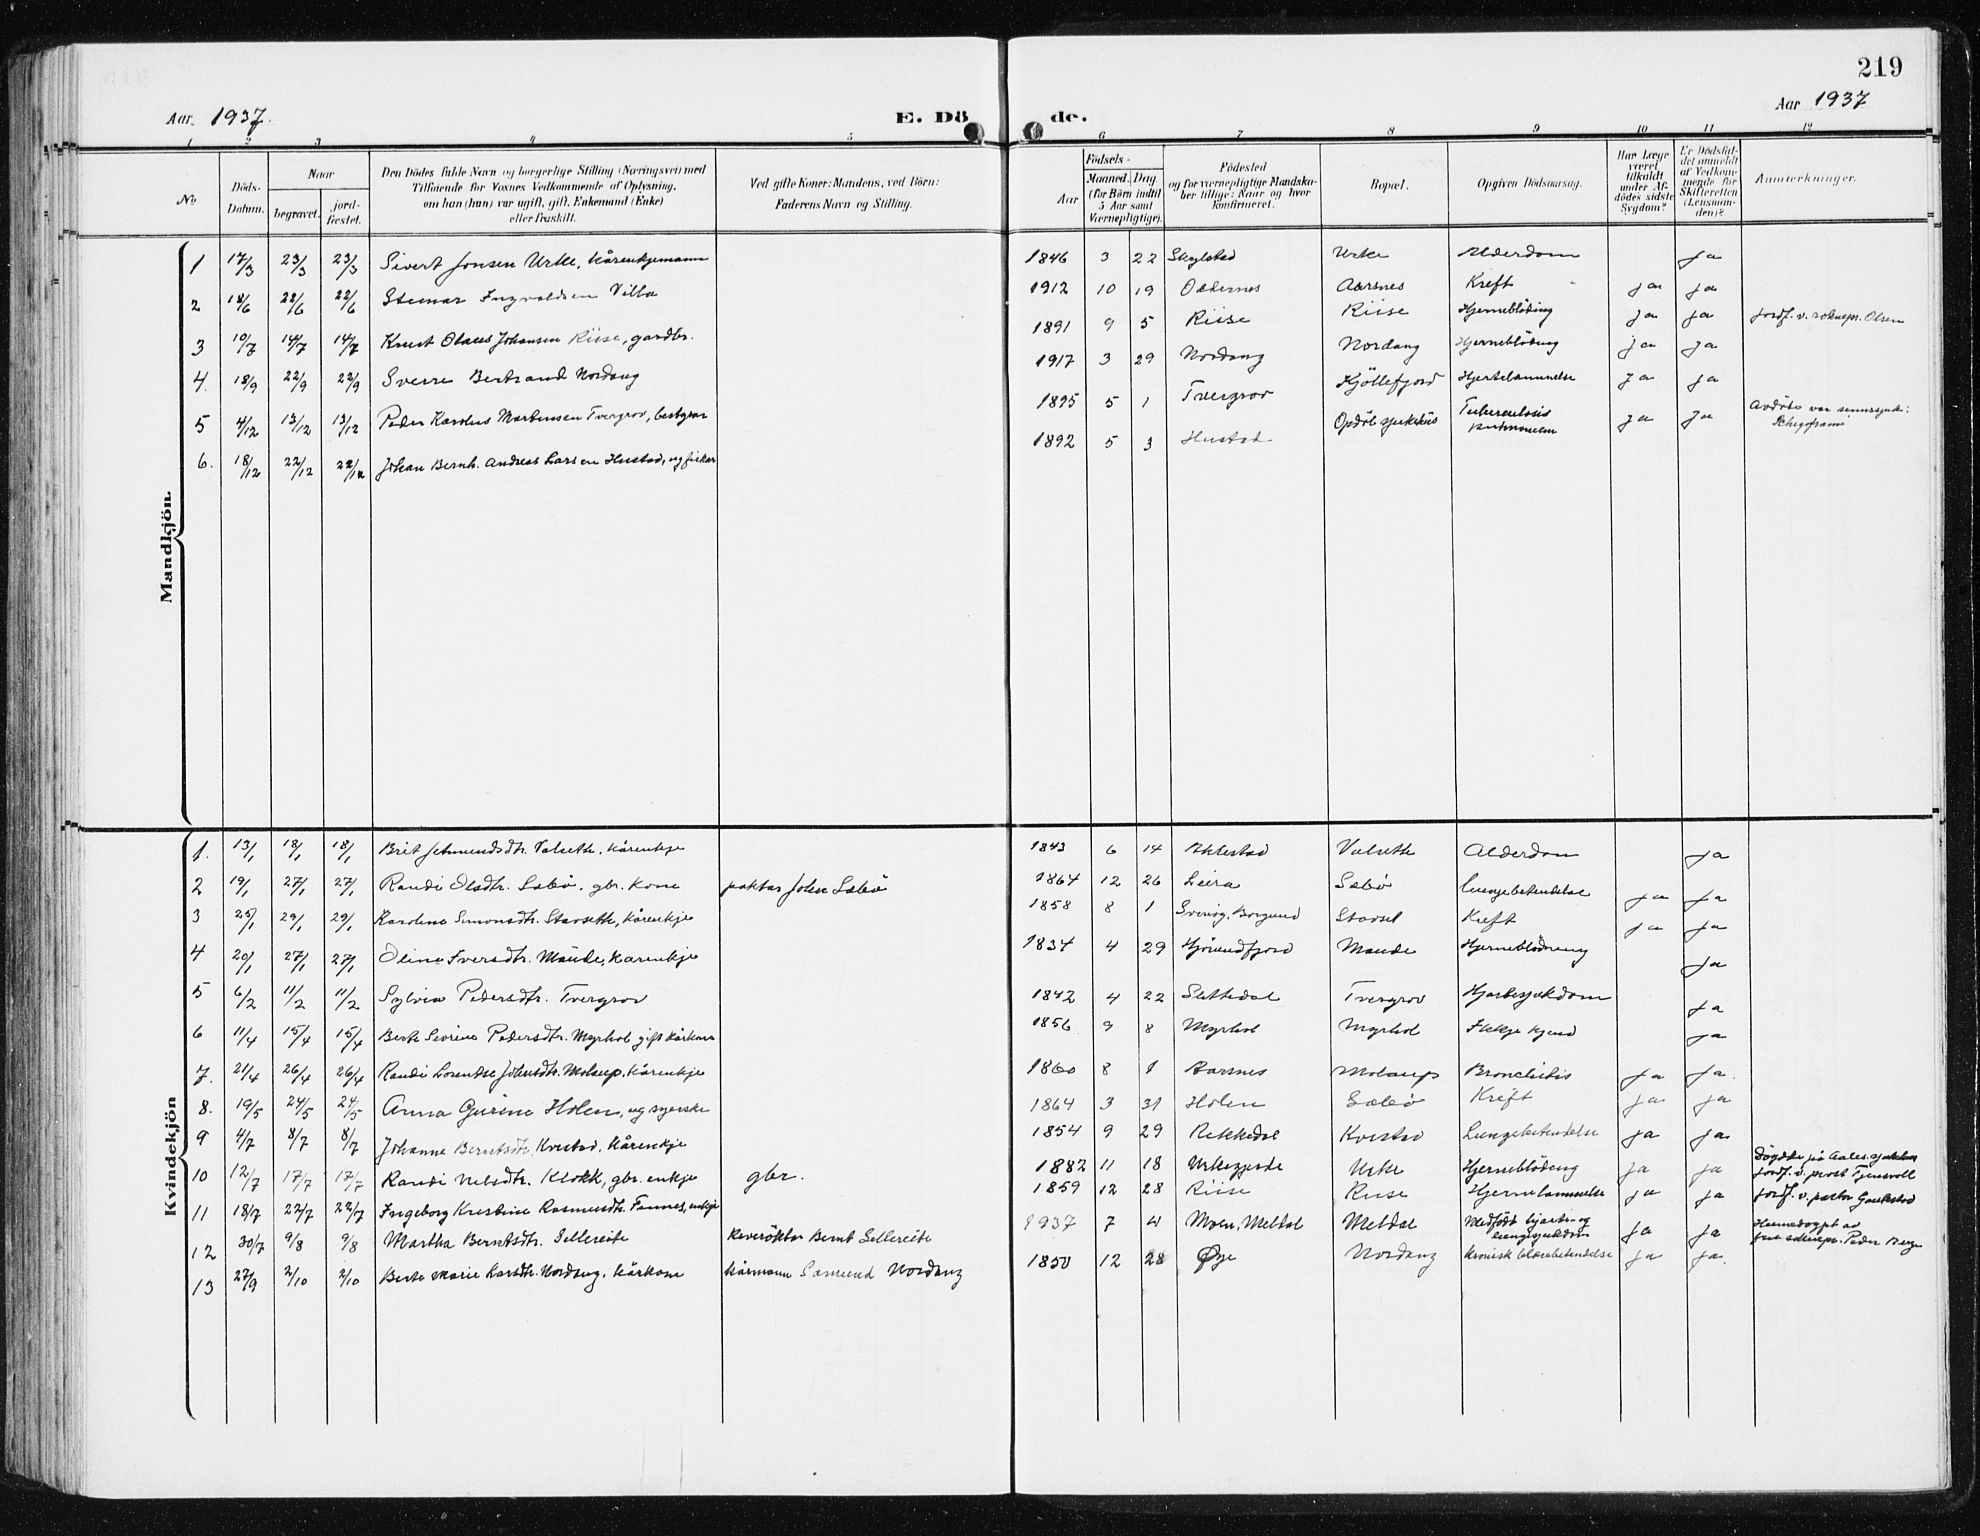 219
Aar 1937.
E. Dö
de.
Aar 1937
1 2 3 4 5 6 7 8 9 10 11 12
No
Döds-Datum.
Naar
begravet.
jord-fæstet.
Den Dödes fulde Navn og borgerlige Stilling (Næringsvei) med
Tilföiende for Voxnes Vedkommende af Oplysning,
om han (hun) var ugift, gift, Enkemand (Enke)
eller fraskilt.
Ved gifte Koner: Mandens, ved Börn:
Faderens Navn og Stilling.
Födsels-
Aar
Maaned. Dag
(for Börn indtil
5 Aar samt
Værnepligtige).
Födested
og for værnepligtige Mandska-
ber tillige: Naar og hvor
konfirmeret.
Bopæl.
Opgiven Dödsaarsag.
Har Læge
været
tilkaldt
under Af-
dödes sidste
Sygdom?
Er Dödsfal-
det anmeldt
af Vedkom-
mende for
Skifteretten
(Lensman-
den)?
Anmærkninger.
Mandkjön.
1 17/3 23/3 23/3 Sivert Jonsen Urke, kårenkjemann 1846 3 22 Skylstad Urke Alderdom ja
2 18/6 22/6 22/6 Steinar Ingvaldsen Villa 1912 10 19 Aarsnes Kreft ja ja
3 10/7 14/7 14/7 Knut Olaus Johansen Riise, gardbr. 1891 9 5 Riise Riise Hjerneblöding ja ja jordf. v. soknepr. Olsen
4. 18/9 22/9 22/9 Sverre Bertrand Nordang 1917 3 29 Nordang Nordang Hjerneblöding ja ja
5 4/12 13/12 13/12 Peder Karolus Martinsen Tvergrov, bestyrer 1895 5 1 Tvergrov Kjöllefjord Hjertelammelse ja ja
6. 18/12 22/12 22/12 Johan Bernh. Andreas Larsen Hustad, ug fisker 1892 5 3 Hustad Opdöl sjukehus Tuberculosis pulmonum ja ja Avdöde var sinnssjuk:
Kvindekjön
1. 13/1 18/1 18/1 Brit Valseth, kårenkje 1843 6 14 Valseth Alderdom ja
2 19/1 27/1 27/1 Randi Olsdtr. Sæbö, gbr. kone Johan Sæbö 1864 12 26 Leira Sæbö Lungebetendelse ja ja
3 25/1 29/1 29/1 Karoline Simonsdtr. Stavseth, kårenkje 1858 8 1 Borgund Stavset Kreft ja ja
4 20/1 27/1 27/1 Oline Iversdtr. Maude, kårenkje 1834 4 29 Hjörundfjord Maude Hjerneblödning ja
5 6/2 11/2 11/2 Sylvia Pedersdtr. Tvergrov 1842 4 22 Slettedal Tvergrov Hjartesjukdom ja
6 11/4 15/4 15/4 Berte Sevrine Pedersdtr. Myrhol gift kårkone 1856 9 8 Myrhol Myrhol Ikkje kjend ja
7. 21/4 26/4 26/4 Randi Lorentse Johansdtr. Molaup, kårenkje 1860 8 1 Aarsnes Molaup Bronchitis ja ja.
8. 19/5 24/5 24/5 Anna Gurine Holen, ug syerske 1864 3 31 Holen Sæbö Kreft ja ja
9 4/7 8/7 8/7 Johanne Berntsdtr. Kvistad, kårenkje 1854 9 29 Rekkedal Kvistad Lungebetendelse ja ja
10 12/7 17/7 17/7 Randi Nilsdtr. Klokk, gbr. enkje gbr. 1882 11 18 Urke Hjerneblöding ja ja Döydde på Aales. sjukehus jordf. v. prost Tjensvoll
11 18/7 22/7 22/7 Ingeborg Kristine Rasmusdtr. Tannes, enkje 1859 12 28 Riise Riise Hjernelammelse ja ja jordf. v. pastor
12 30/7 9/8 9/8 Martha Berntsdtr. Sellereite Bernt Sellereite 1937 7 4 Moen, Meldal Meldal Medfödt hjarte- og lungesjukdom ja ja Heimedöypt av
13 27/9 2/10 2/10 Berte Marie Larsdtr. Nordang, kårkone kårmann Sæmund Nordang 1850 12 28 Øye Nordang kronisk blærebetendelse ja ja.